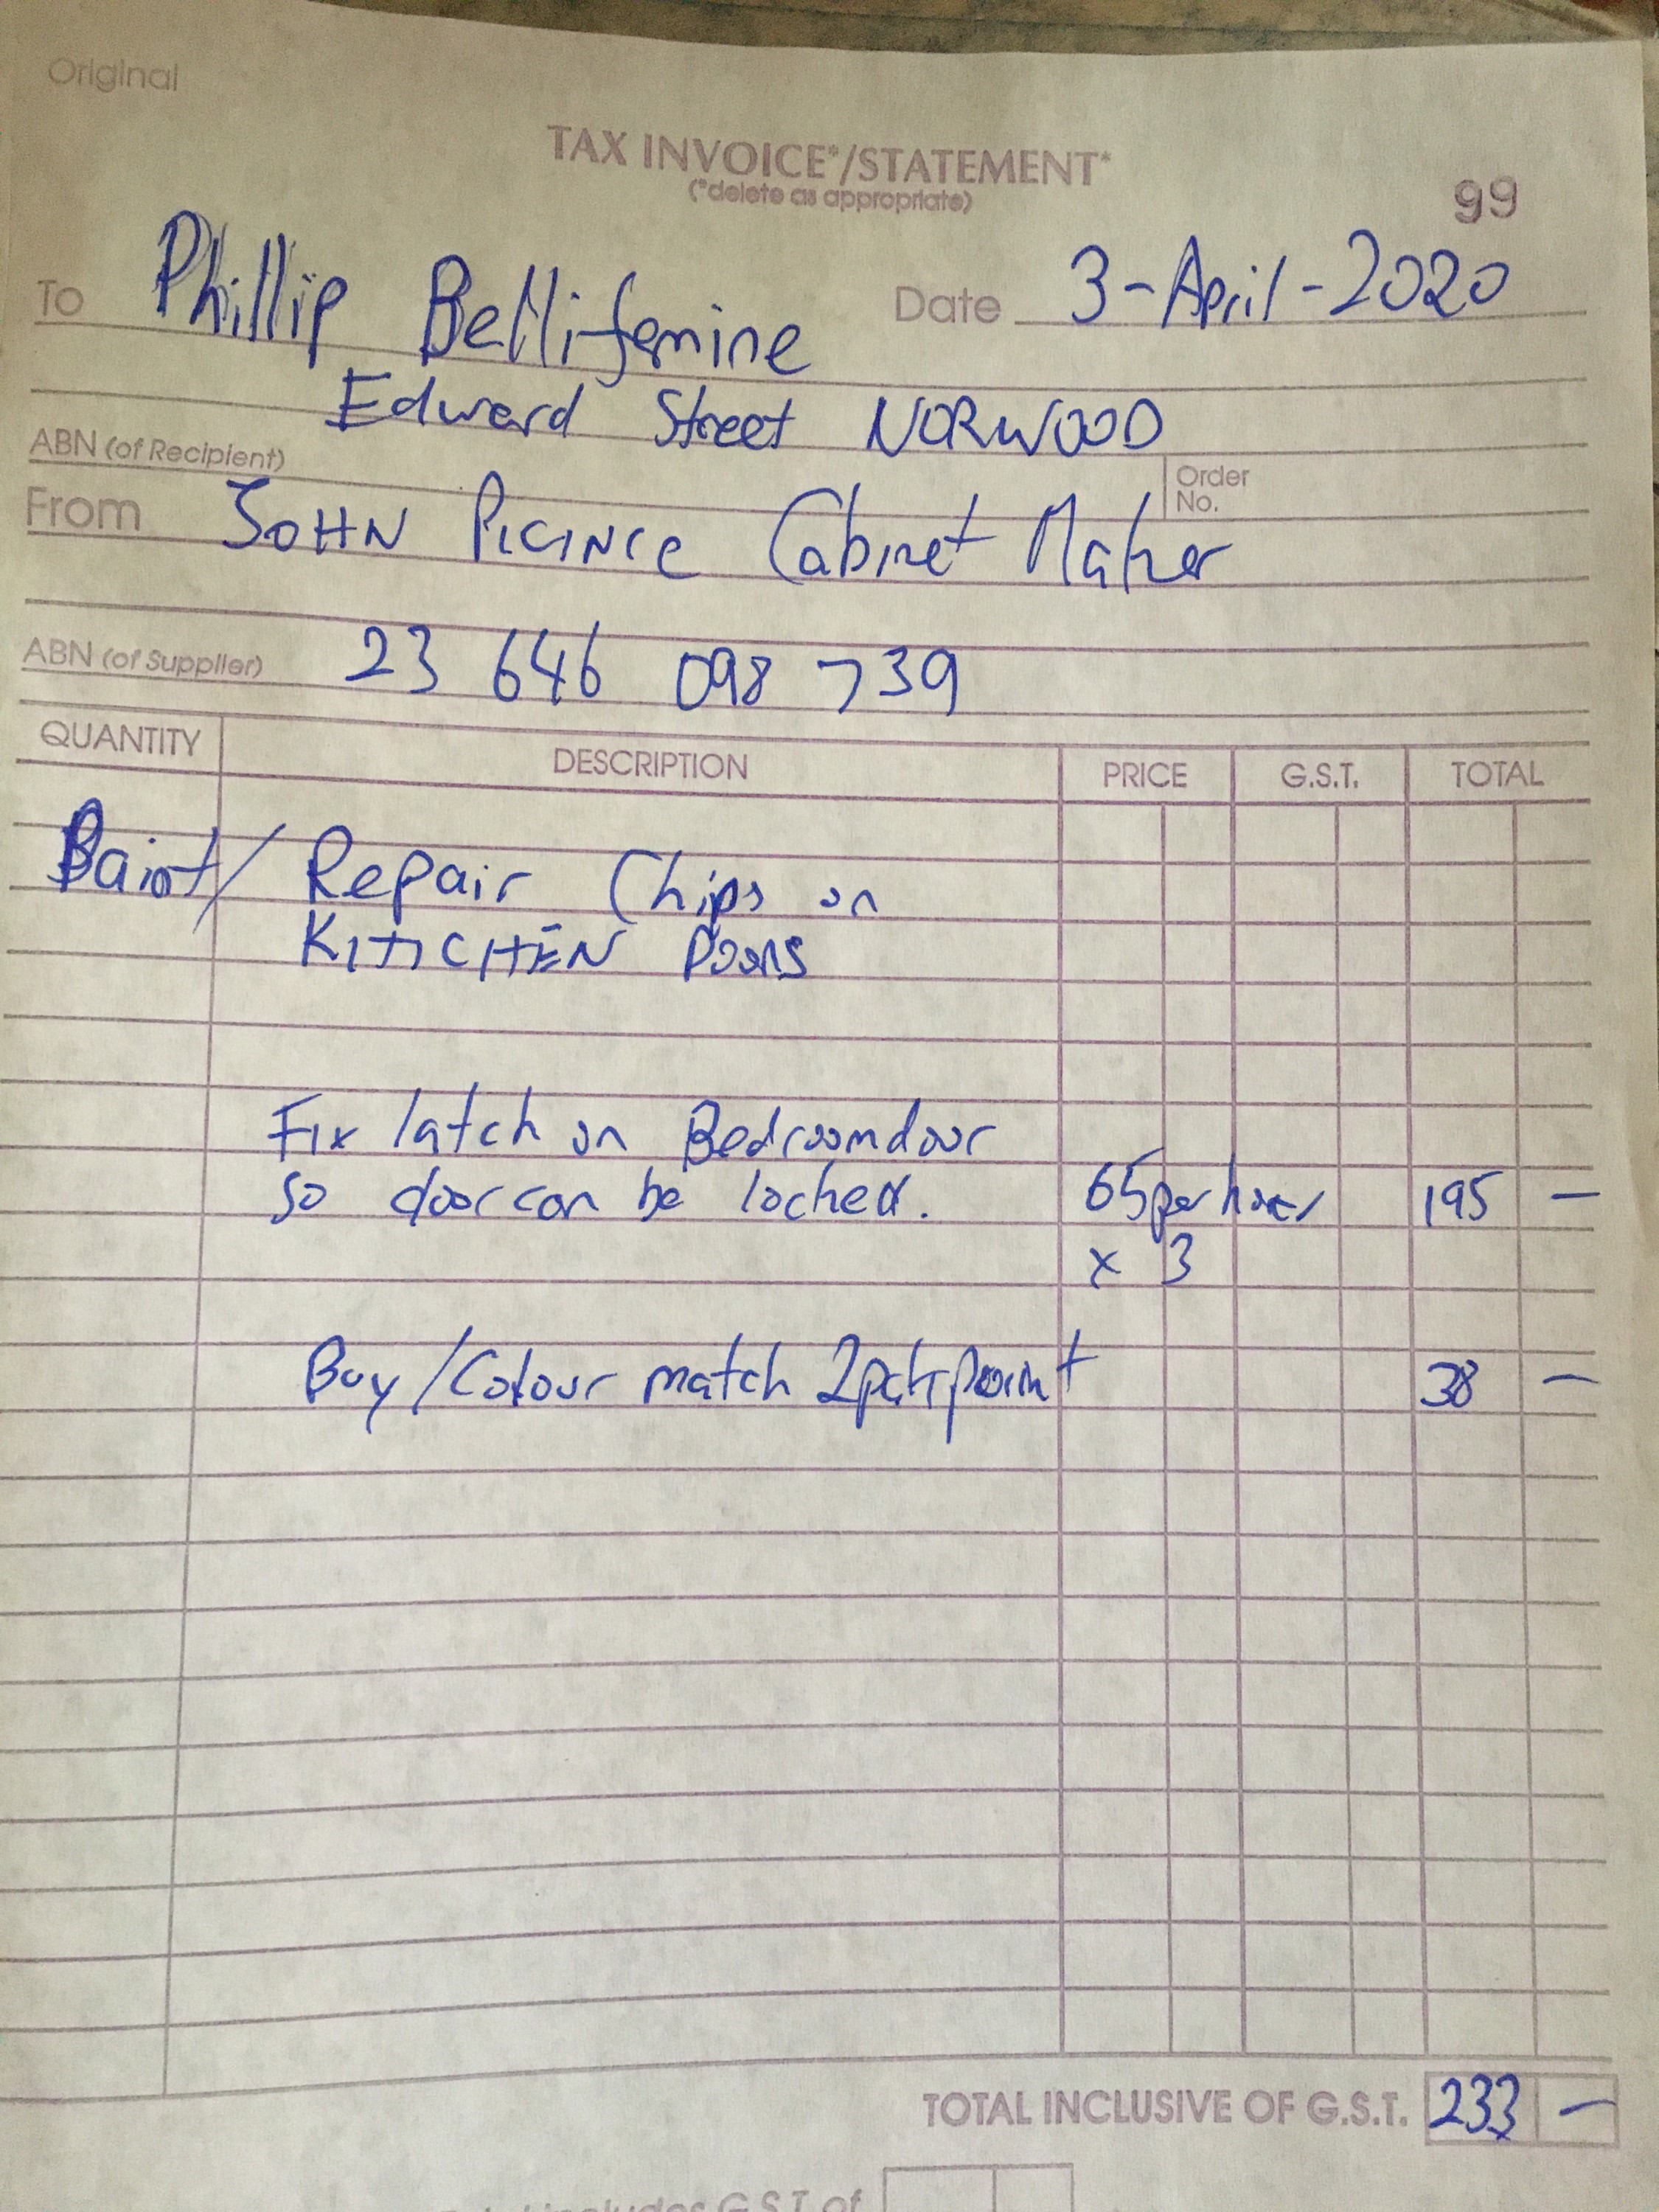 Original
TAX INVOICE*/STATEMENT*
(*delete as appropriate)
99
To Phillip Bellifemine
Date 3-April-2020
Edward Street NORWOOD
ABN (of Recipient)
Order No.
From JOHN PICINCE Cabinet Maker
ABN (of Supplier) 23 646 098 739
QUANTITY DESCRIPTION PRICE G.S.T. TOTAL
Paint / Repair Chips on
KITCHEN DOORS
Fix latch on Bedroom door
so door can be locked. 65 per hour 195 —
x 3
Buy/Colour match 2pck paint 38 —
TOTAL INCLUSIVE OF G.S.T. 233 —
Total includes G.S.T. of